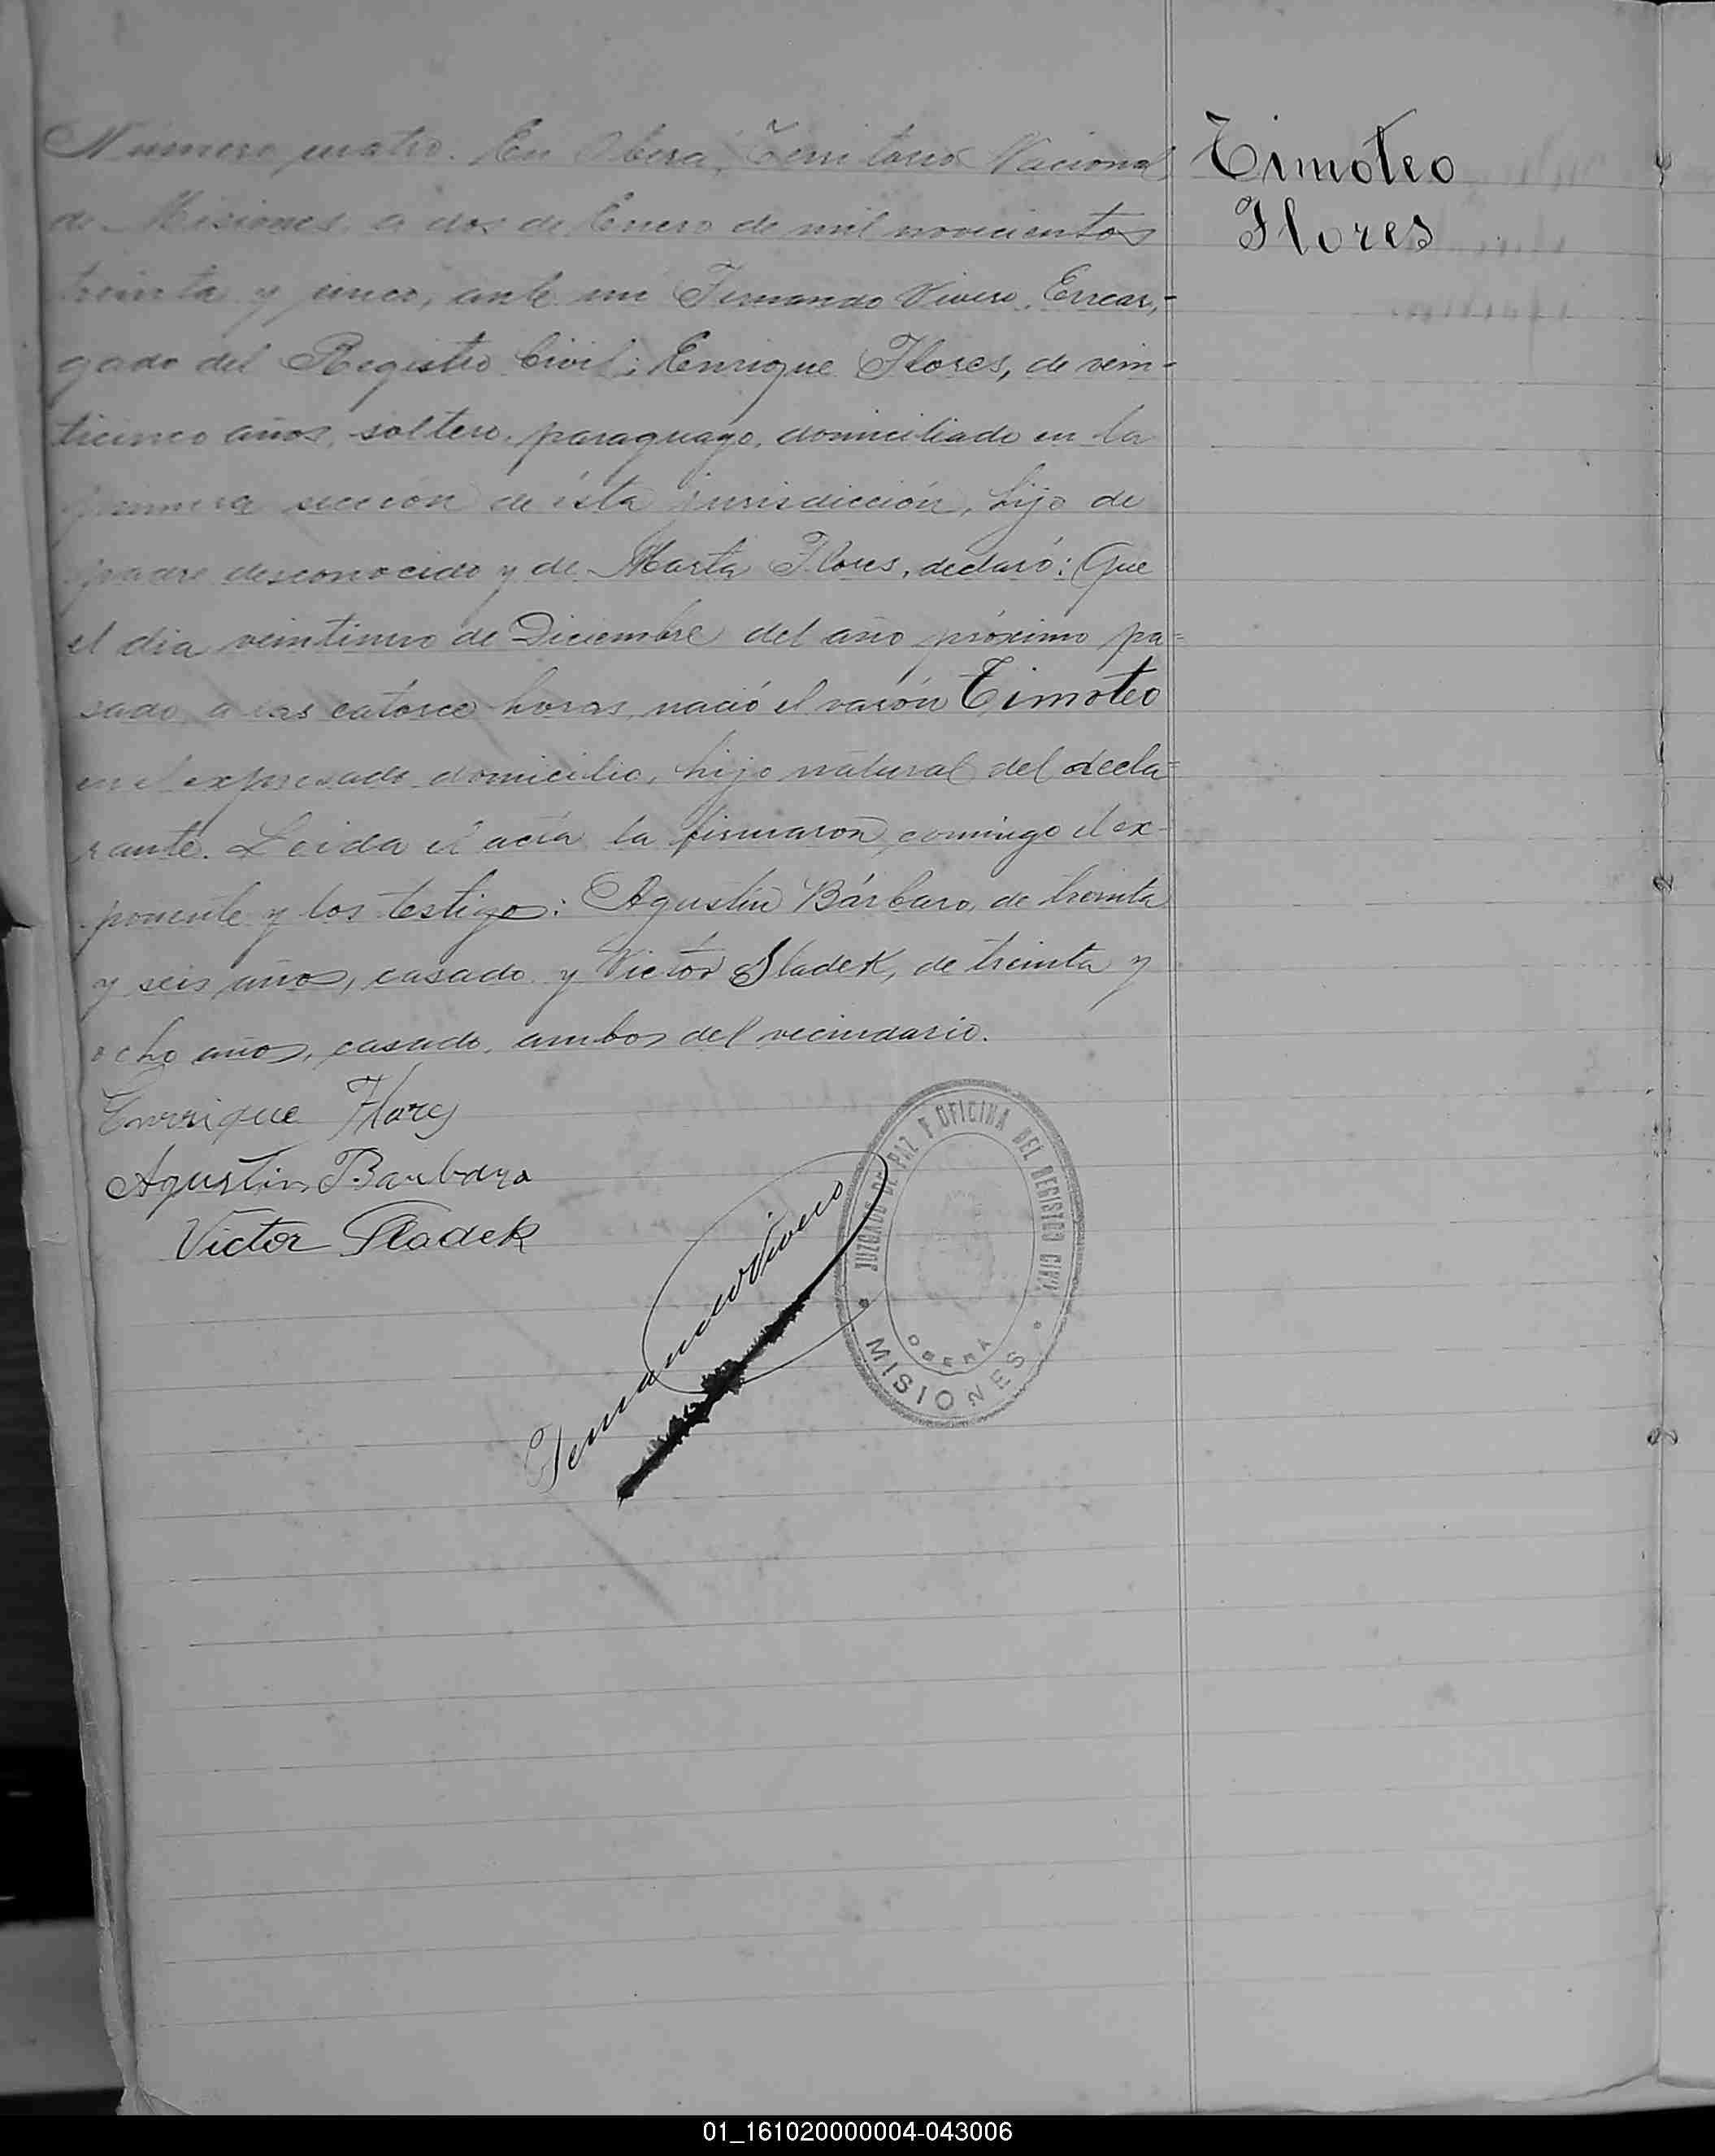 Timoteo
Flores
Número cuatro. En Oberá, Territorio Nacional
de Misiones, a dos de Enero de mil novecientos
treinta y cinco, ante mi Fernando Vivero, Encar-
gado del Registro Civil; Enrique Flores, de vein-
ticinco años, soltero, paraguayo, domiciliado en la
primera sección de ésta jurisdicción, hijo de
padre desconocido y de Marta Flores, declaró: Que
el dia de Diciembre del año próximo pa=
sado, a las catorce horas, nació el varón Timoteo
en el expresado domicilio, hijo natural del decla=
rante. Leida el acta la firmaron comingo el ex-
ponente y los testigos: Agustín Bárbaro, de treinta
y seis años, casado y Victor Sladek, de treinta y
ocho años, casado, ambos del vecindario.
Enrrique Flores
Agustin Barbaro
Victor Sladek
Fernando Vivero
JUZGADO DE PAZ Y OFICINA DEL REGISTRO CIVIL
OBERÁ
MISIONES
01_161020000004-043006